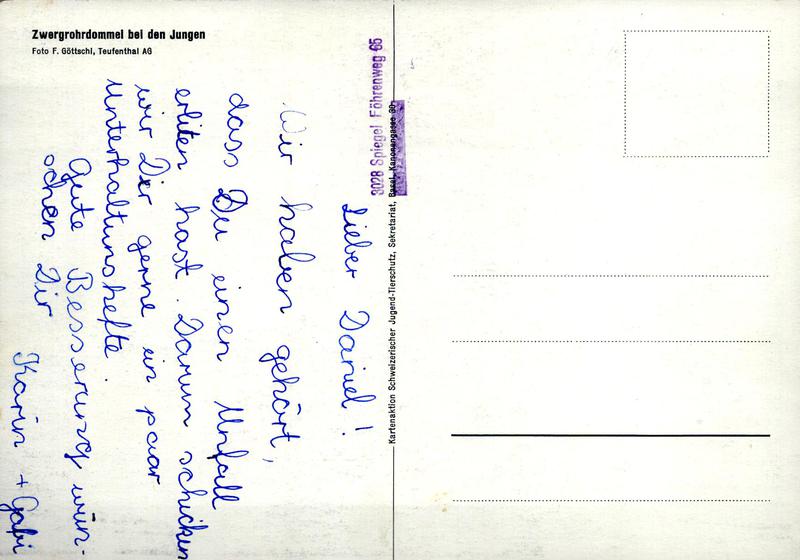 Zwergrohrdommel bei den Jungen
Foto F. Göttschi, Teufenthal AG
3028 Spiegel Föhrenweg 65
Kartenaktion Schweizerischer Jugend-Tierschutz, Sekretariat, Basel, Kanonengasse
Lieber Daniel!
Wir haben gehört,
dass Du einen Unfall
erliten hast. Darum schicken
wir Dir gerne ein paar
Unterhaltunshefte.
Gute Besserung wün-
schen Dir
Karin + Gabi